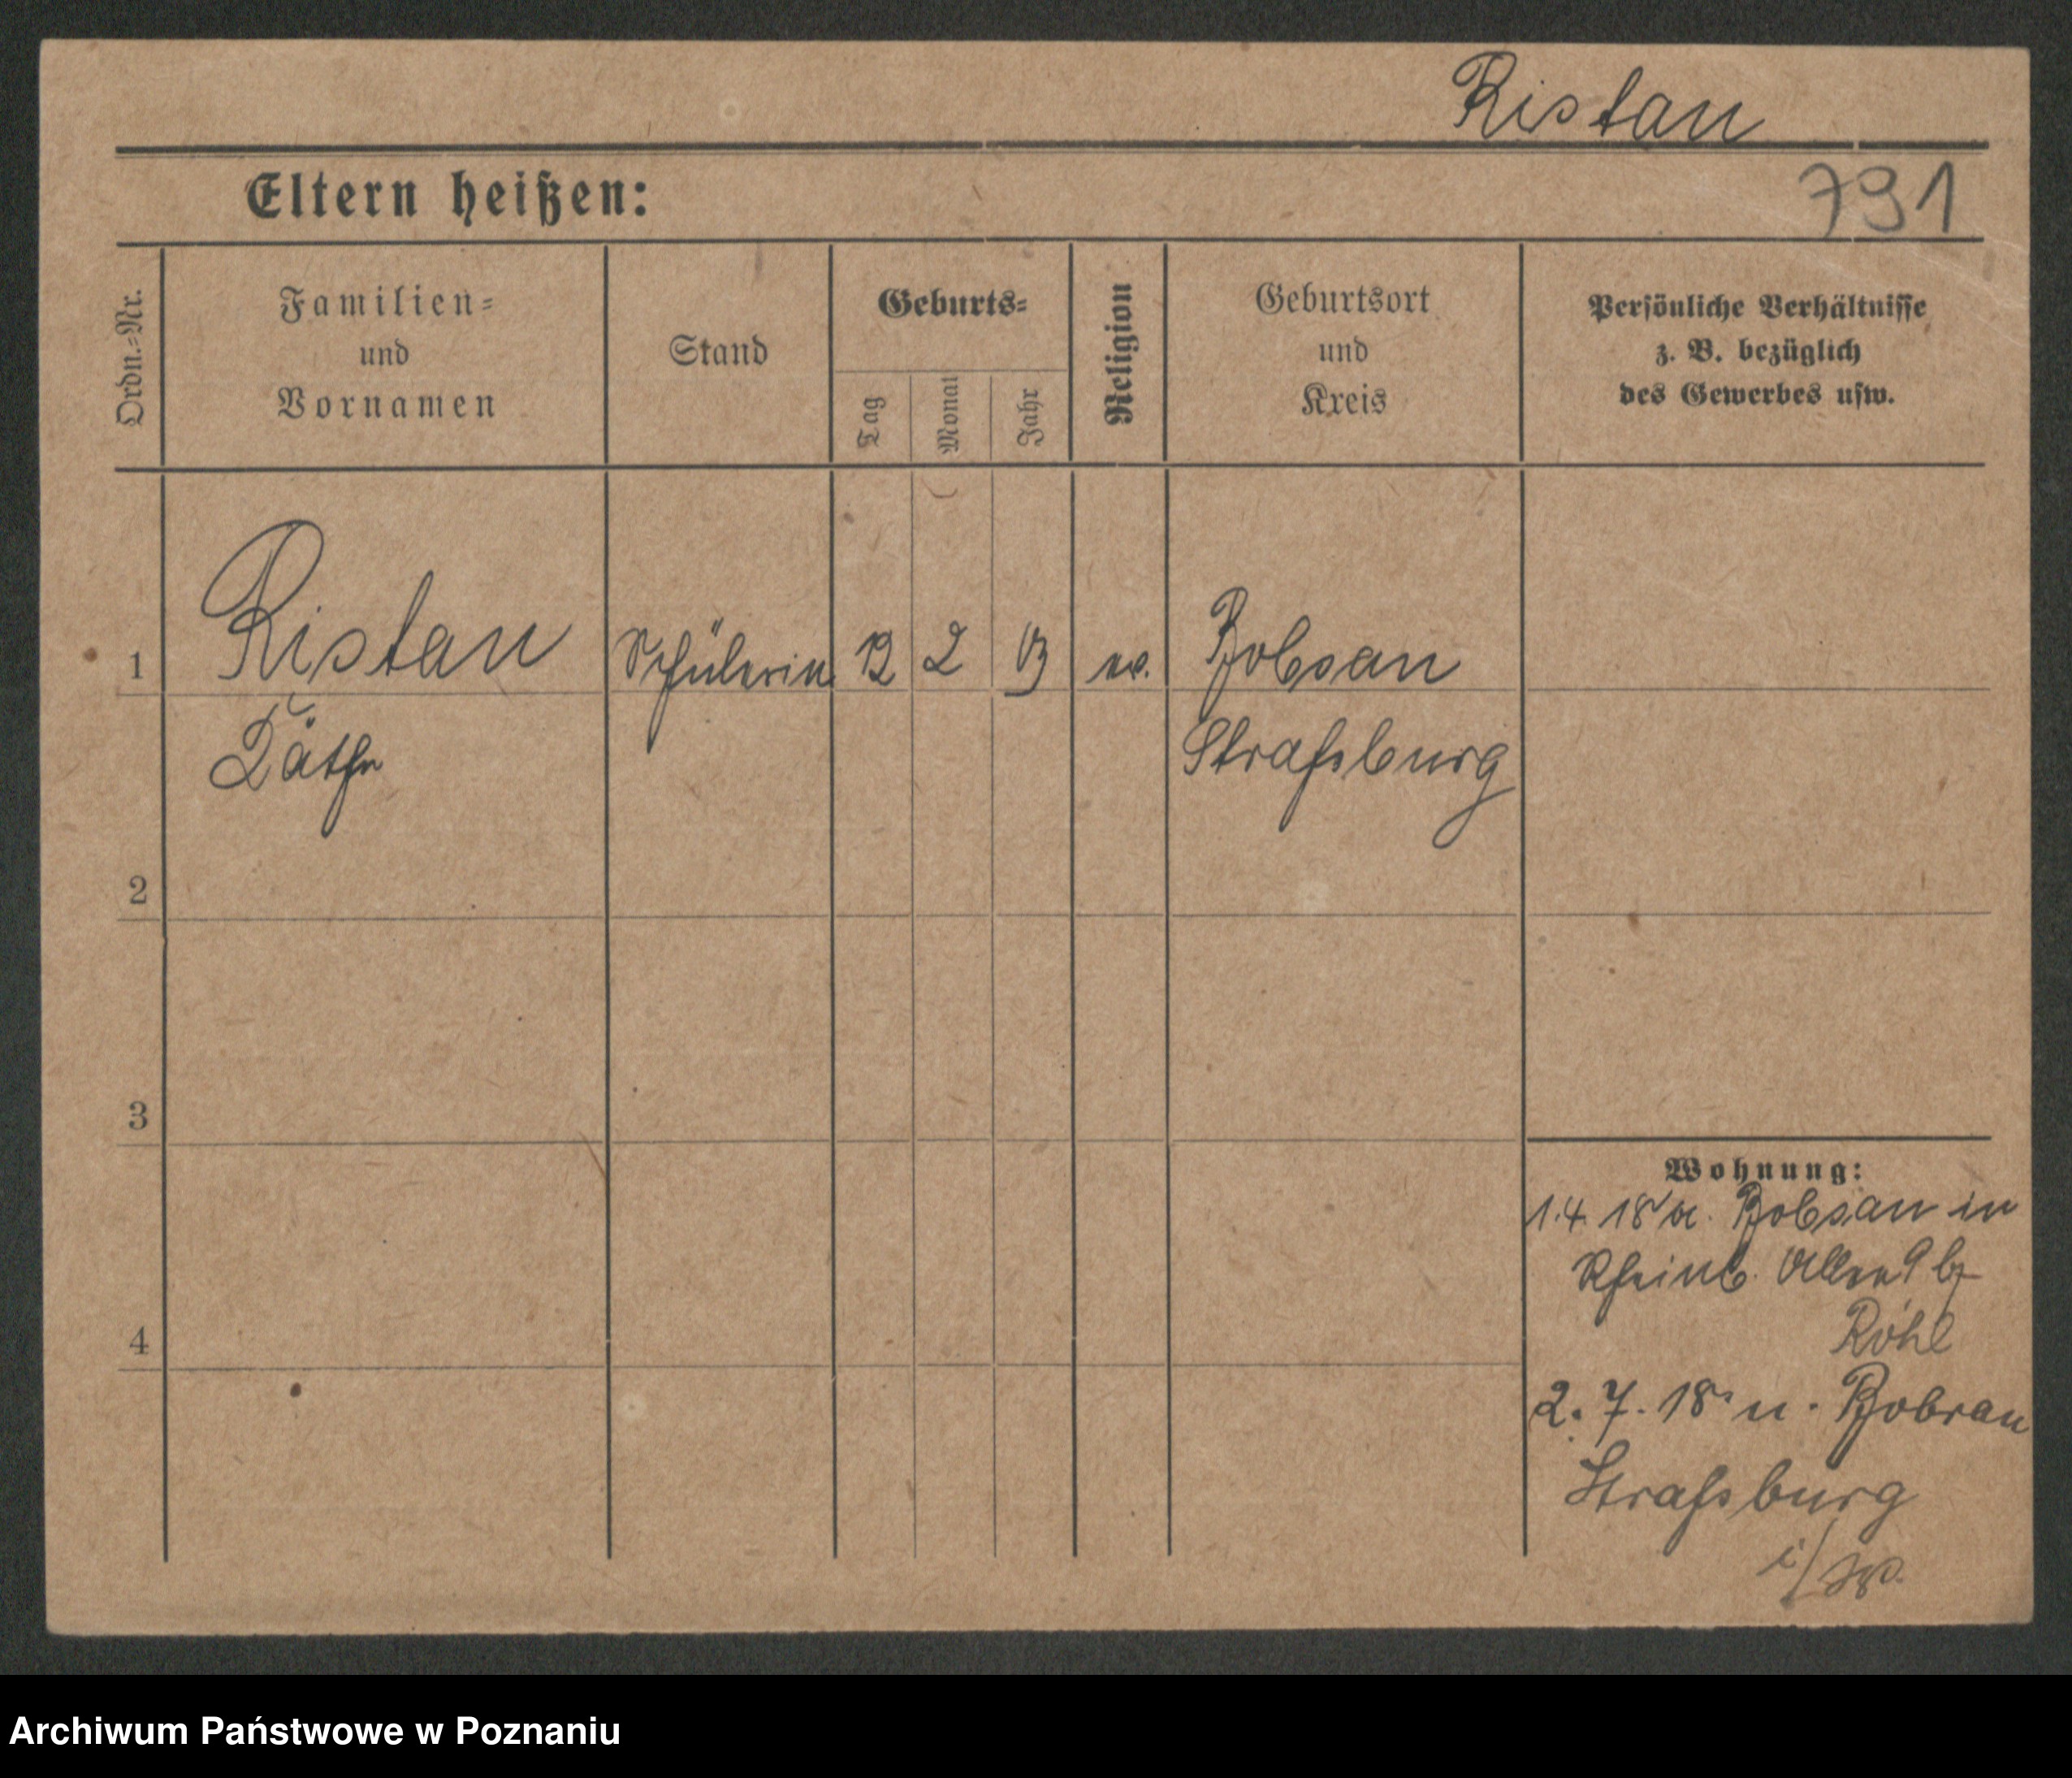 Ristau
Eltern heißen:
791
Ordn.-Nr.
Familien-
und
Vornamen
Stand
Geburts-
Tag
Monat
Jahr
Religion
Geburtsort
und
Kreis
Persönliche Verhältnisse
z. B. bezüglich
des Gewerbes usw.
1 Ristau Schülerin 12 2 03 ev. Bobrau
Käthe Strassburg
2
3
4
Wohnung:
1.4.18 v. Bobrau in
Rheinb. Allee 9 b/
Röhl
2. 7. 18 n. Bobrau
Strassburg
Archiwum Państwowe w Poznaniu